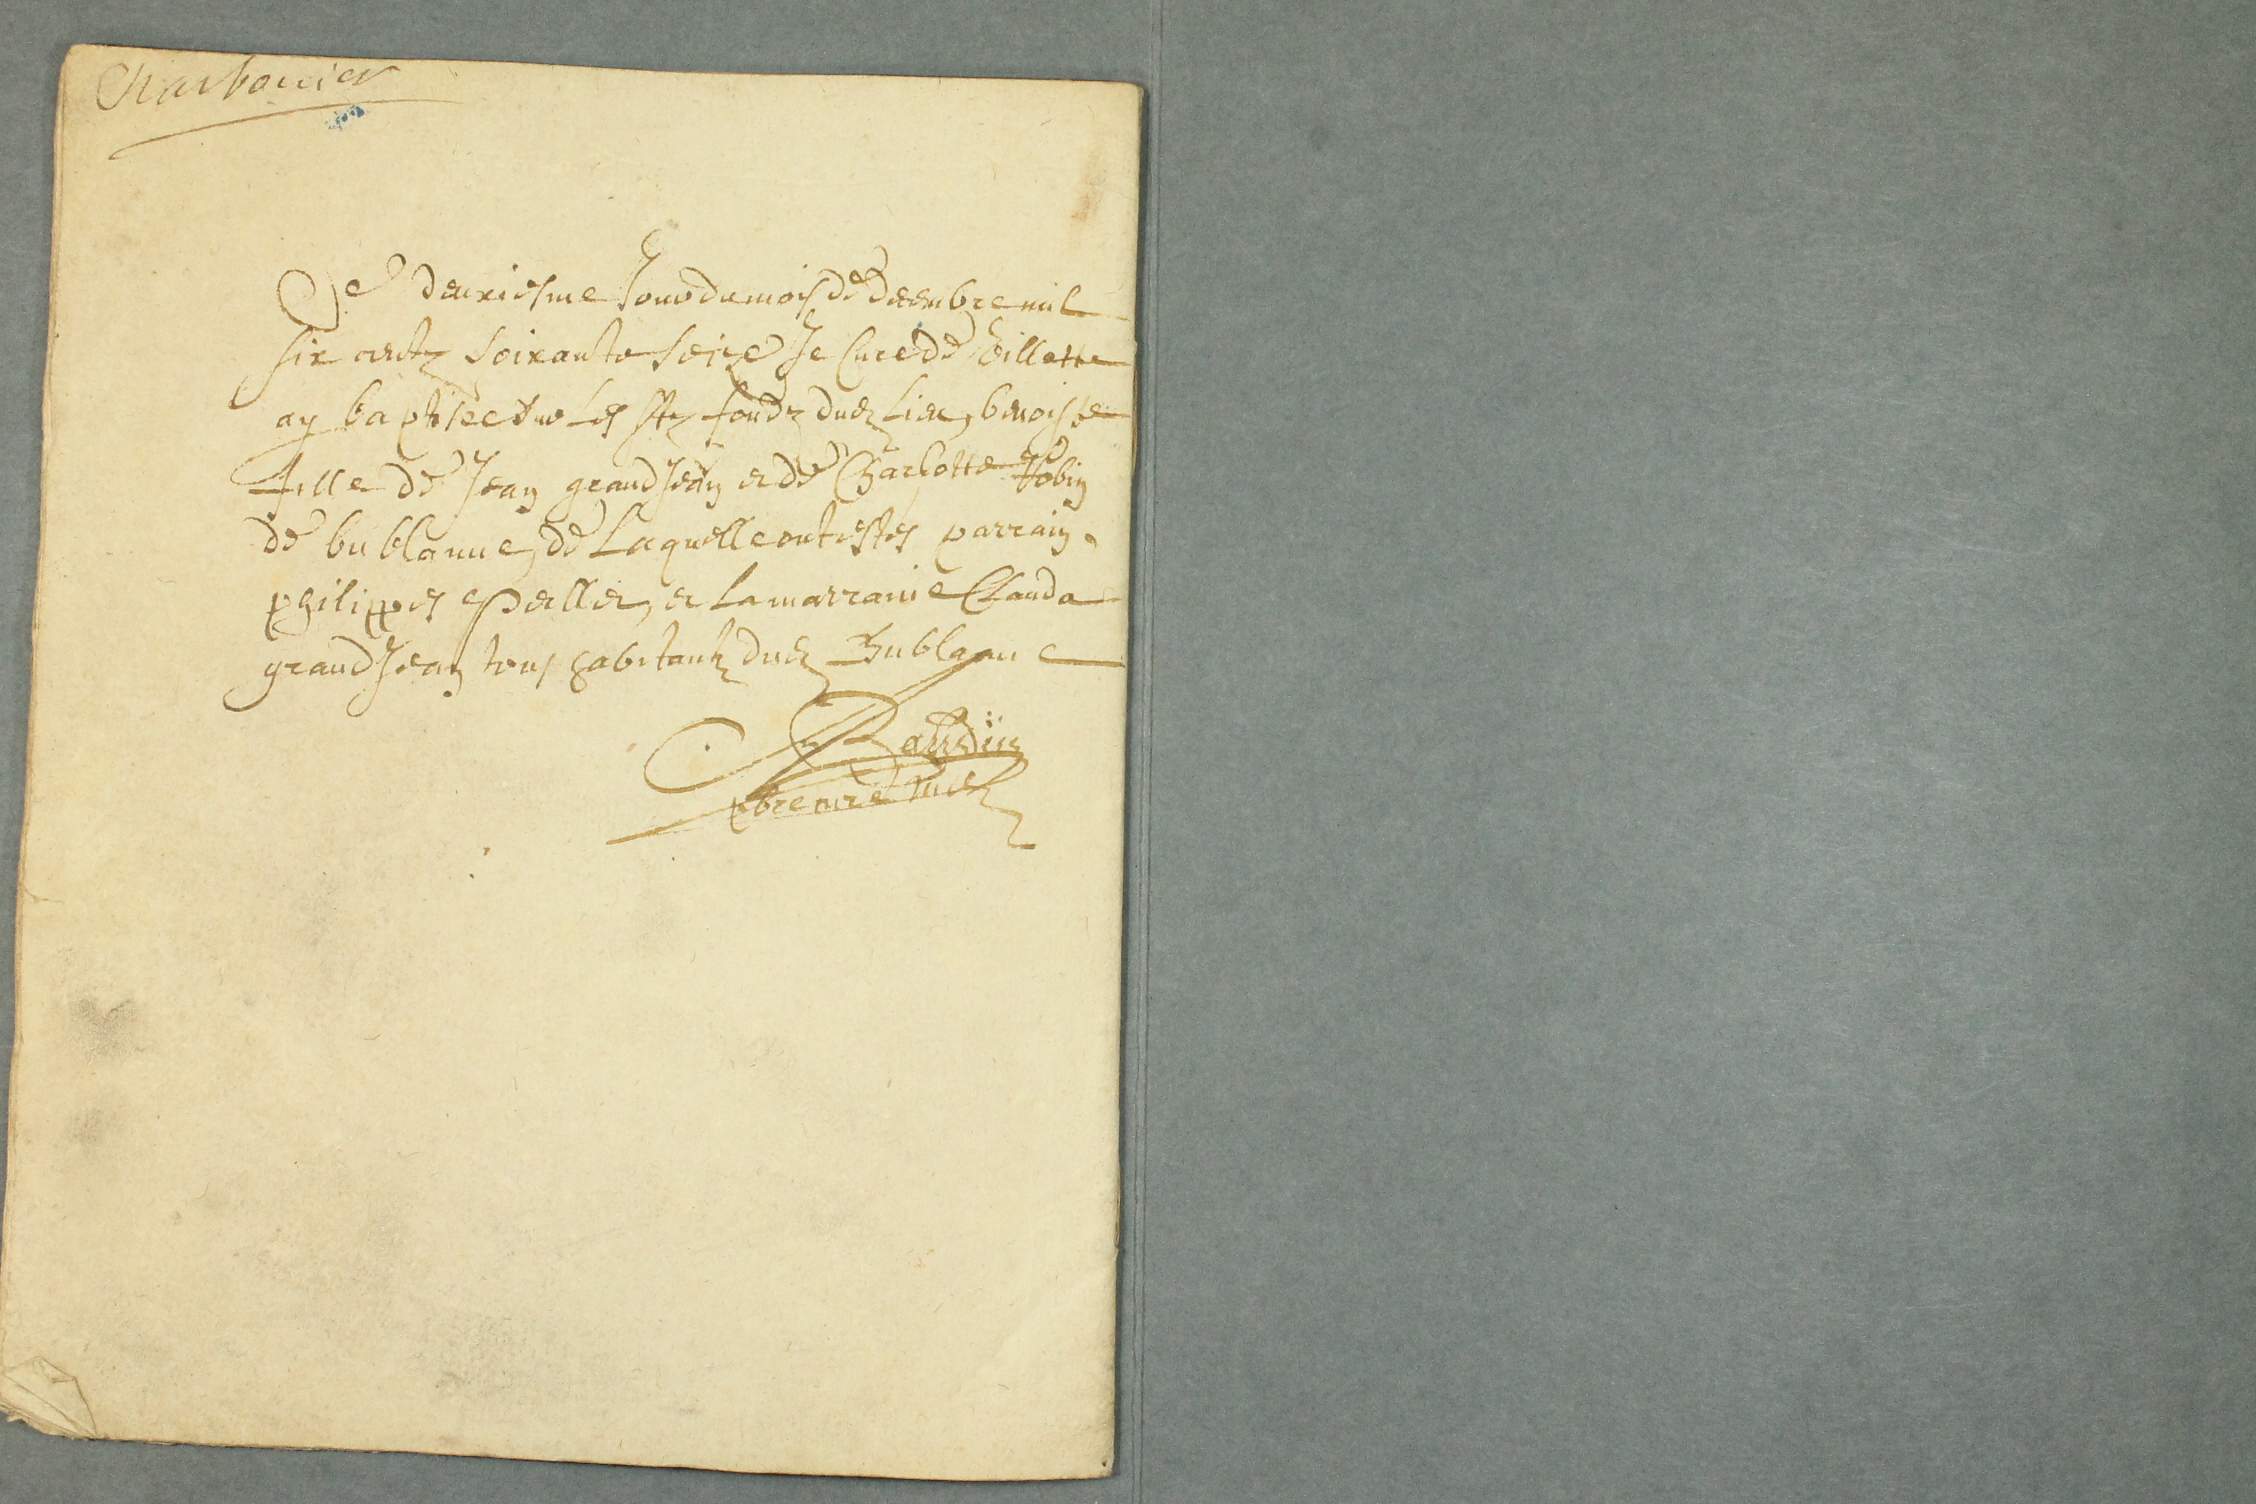 Charbonier
Ce deuxiesme Jour du mois de decembre mil
six centz soixante seize Je Cure de Villette
ay baptisee sur les sts fondz dud lieu, benoiste
fille de Jean grandJean et de Charlotte Robin
de bublanne, de laquelle ont estes parrain
philippes Peller, et la marraine Clauda
grandJean tous habitantz dud Bublanne